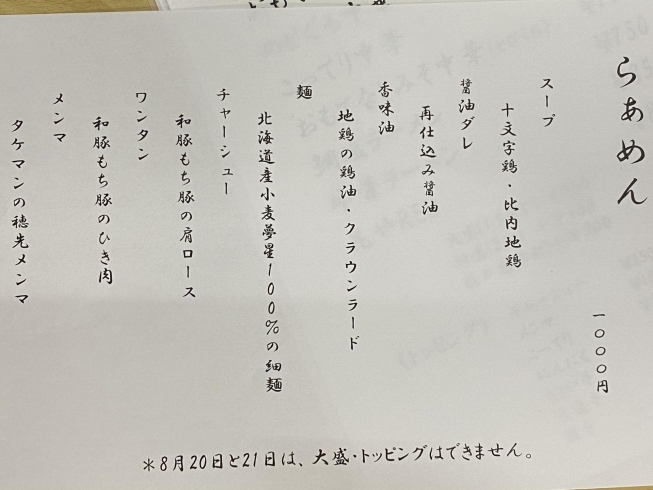 らぁめん
一〇〇〇円
スープ
十文字鶏・比内地鶏
醤油ダレ
再仕込み醤油
香味油
地鶏の鶏油・クラウンラード
麺
北海道産小麦夢星100%の細麺
チャーシュー
和豚もち豚の肩ロース
ワンタン
和豚もち豚のひき肉
メンマ
タケマンの穂先メンマ
＊8月20日と21日は、大盛・トッピングはできません。